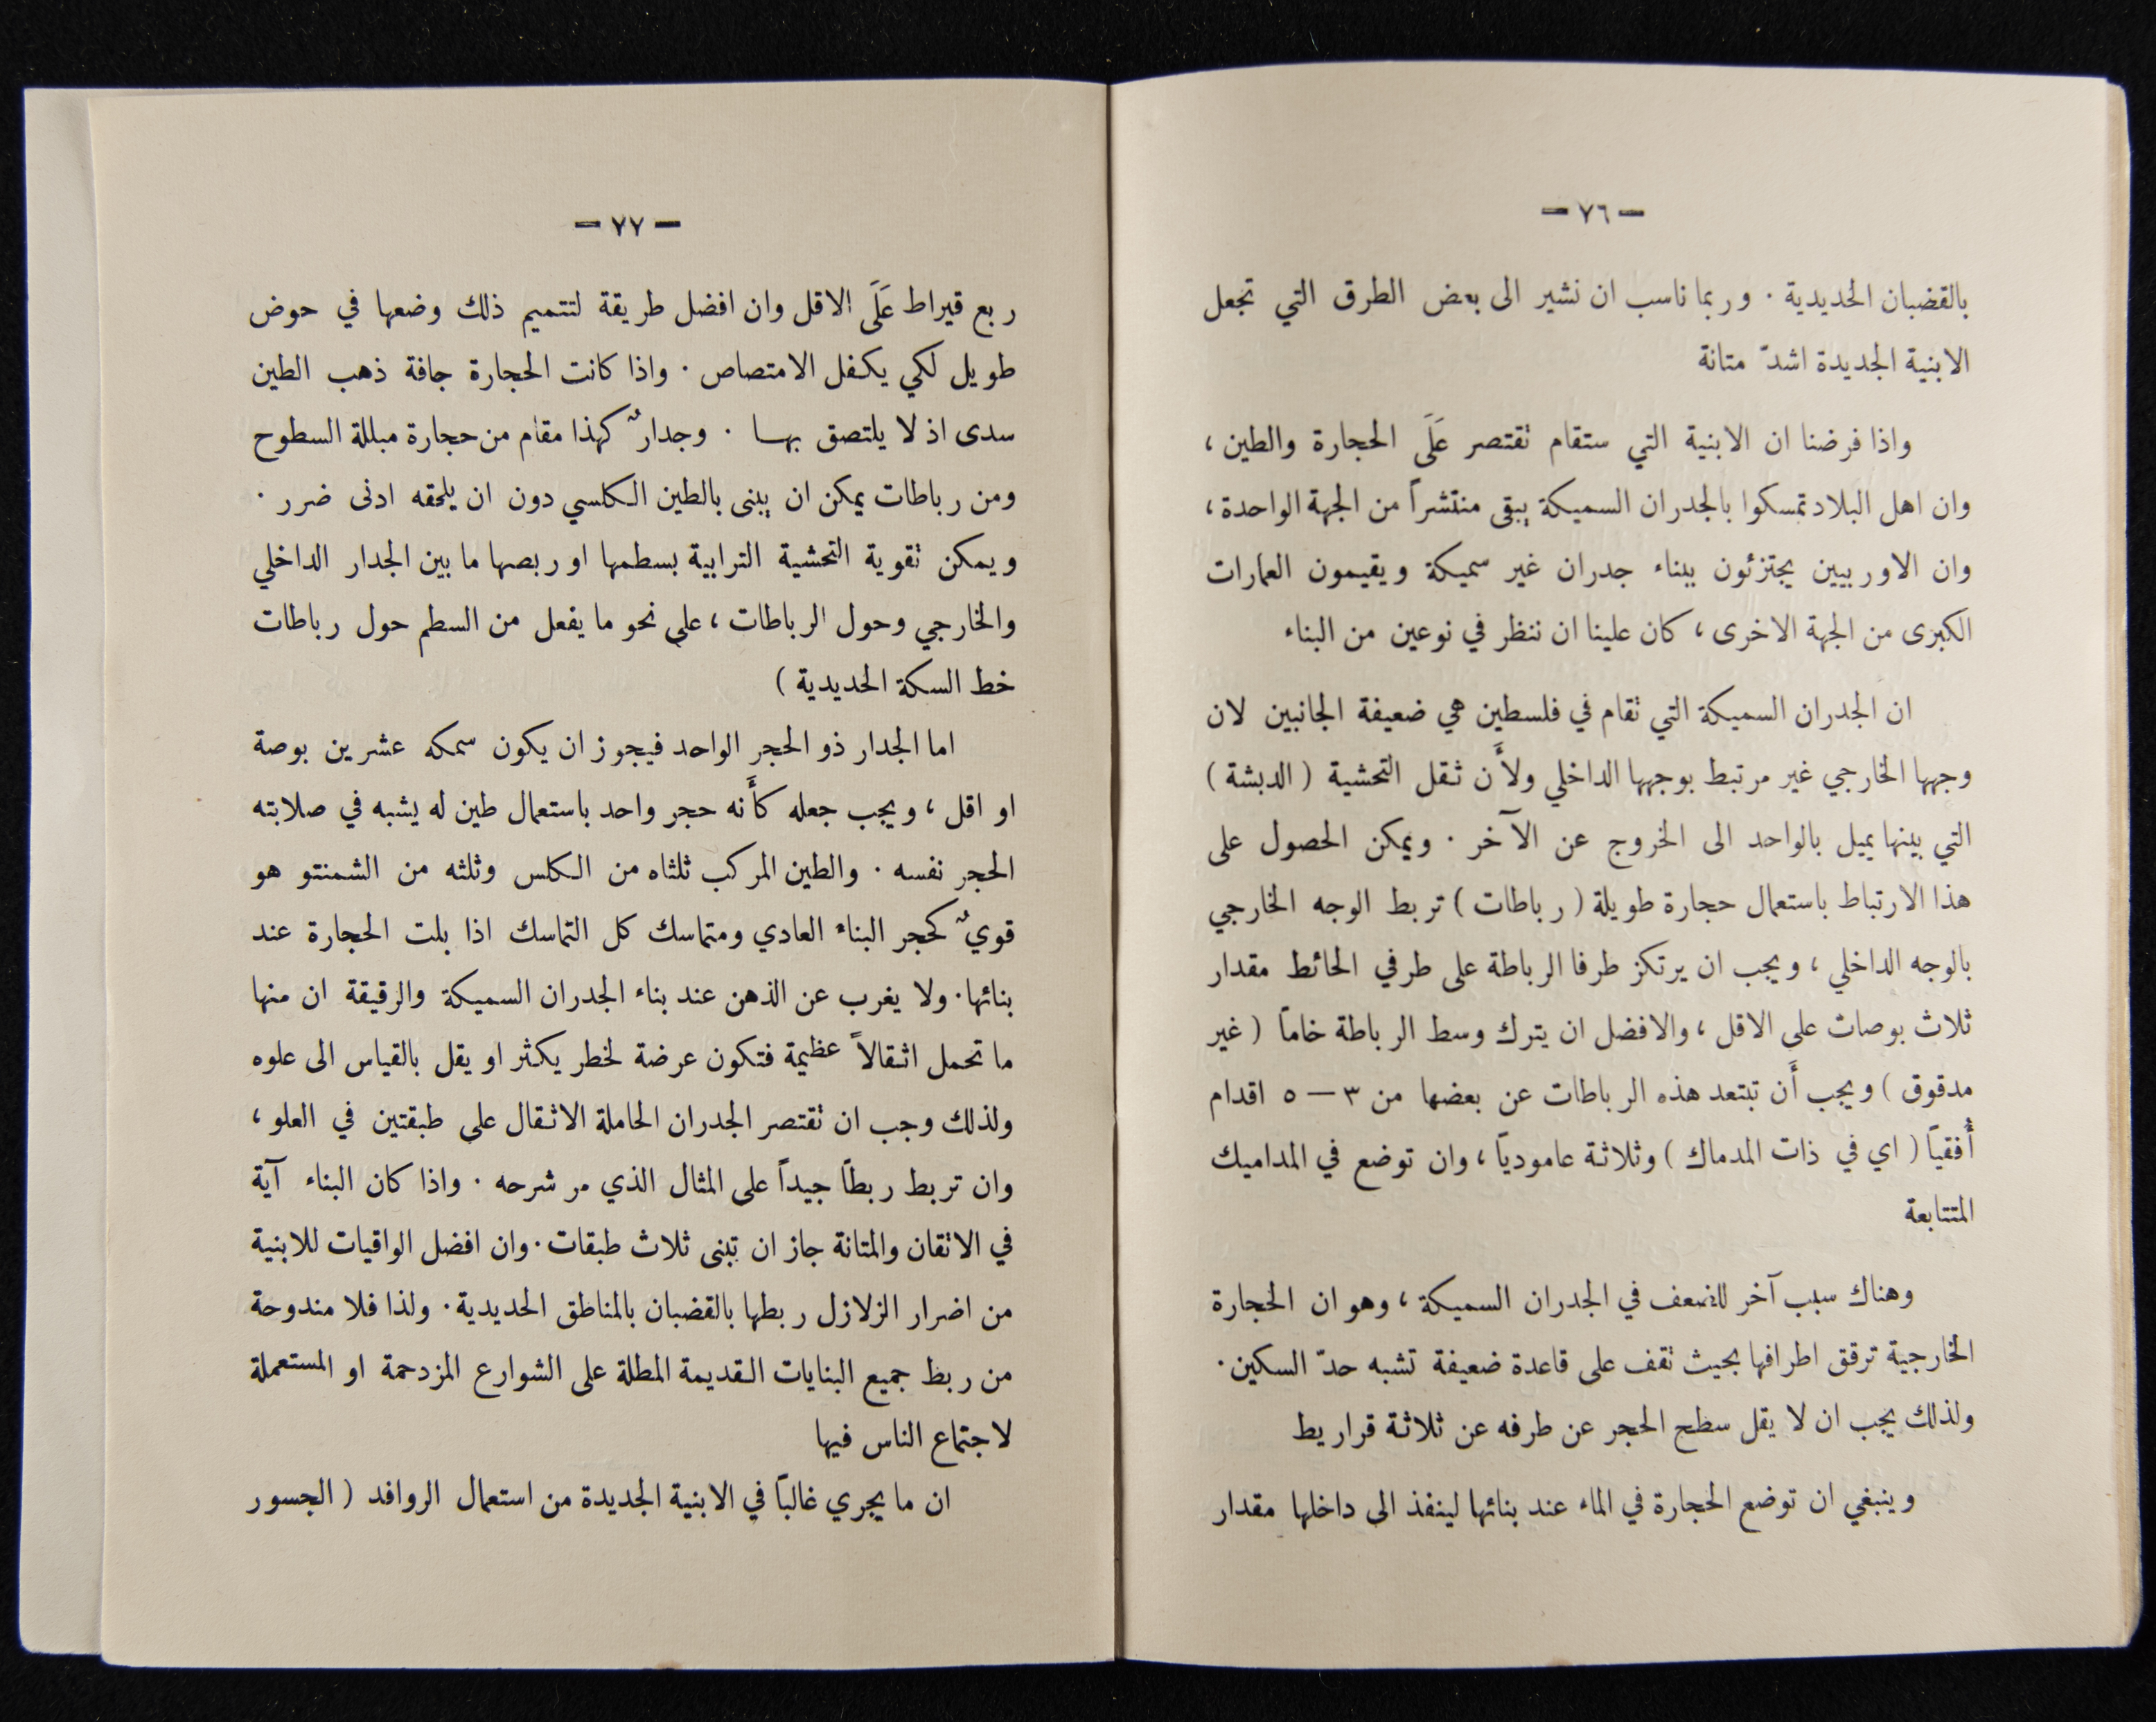 — ٧٦ —
بالقضبان الحديدية . وربما ناسب ان نشير الى بعض الطرق التي تجعل
الابنية الجديدة اشدّ متانة
واذا فرضنا ان الابنية التي ستقام تقتصر عَلَى الحجارة والطين ،
وان اهل البلاد تمسكوا بالجدران السميكة يبقى منتشراً من الجهة الواحدة ،
وان الاوربيين يجتزئون ببناء جدران غير سميكة ويقيمون العمارات
الكبرى من الجهة الاخرى ، كان علينا ان ننظر في نوعين من البناء
ان الجدران السميكة التي تقام في فلسطين هي ضعيفة الجانبين لان
وجهها الخارجي غير مرتبط بوجهها الداخلي ولأَن ثقل التحشية ( الدبشة )
التي بينها يميل بالواحد الى الخروج عن الآخر . ويمكن الحصول على
هذا الارتباط باستعمال حجارة طويلة ( رباطات ) تربط الوجه الخارجي
بالوجه الداخلي ، ويجب ان يرتكز طرفا الرباطة على طرفي الحائط مقدار
ثلاث بوصات على الاقل ، والافضل ان يترك وسط الرباطة خاماً ( غير
مدقوق ) ويجب أَن تبتعد هذه الرباطات عن بعضها من ٣ — ٥ اقدام
أُفقياً ( اي في ذات المدماك ) وثلاثة عامودياً ، وان توضع في المداميك
المتتابعة
وهناك سبب آخر للضعف في الجدران السميكة ، وهو ان الحجارة
الخارجية ترقق اطرافها بحيث تقف على قاعدة ضعيفة تشبه حدّ السكين .
ولذلك يجب ان لا يقل سطح الحجر عن طرفه عن ثلاثة قراريط
وينبغي ان توضع الحجارة في الماء عند بنائها لينفذ الى داخلها مقدار
— ٧٧ —
ربع قيراط عَلَى الاقل وان افضل طريقة لتتميم ذلك وضعها في حوض
طويل لكي يكفل الامتصاص . واذا كانت الحجارة جافة ذهب الطين
سدى اذ لا يلتصق بها . وجدارٌ كهذا مقام من حجارة مبللة السطوح
ومن رباطات يمكن ان يبنى بالطين الكلسي دون ان يلحقه ادنى ضرر .
ويمكن تقوية التحشية الترابية بسطمها او ربصها ما بين الجدار الداخلي
والخارجي وحول الرباطات ، على نحو ما يفعل من السطم حول رباطات
خط السكة الحديدية )
اما الجدار ذو الحجر الواحد فيجوز ان يكون سمكه عشرين بوصة
او اقل ، ويجب جعله كأَنه حجر واحد باستعمال طين له يشبه في صلابته
الحجر نفسه . والطين المركب ثلثاه من الكلس وثلثه من الشمنتو هو
قويٌ كحجر البناء العادي ومتماسك كل التماسك اذا بلت الحجارة عند
بنائها . ولا يغرب عن الذهن عند بناء الجدران السميكة والرقيقة ان منها
ما تحمل اثقالاً عظيمة فتكون عرضة لخطر يكثر او يقل بالقياس الى علوه
ولذلك وجب ان تقتصر الجدران الحاملة الاثقال على طبقتين في العلو ،
وان تربط ربطاً جيداً على المثال الذي مر شرحه . واذا كان البناء آية
في الاتقان والمتانة جاز ان تبنى ثلاث طبقات . وان افضل الواقيات للابنية
من اضرار الزلازل ربطها بالقضبان بالمناطق الحديدية . ولذا فلا مندوحة
من ربط جميع البنايات القديمة المطلة على الشوارع المزدحمة او المستعملة
لاجتماع الناس فيها
ان ما يجري غالباً في الابنية الجديدة من استعمال الروافد ( الجسور